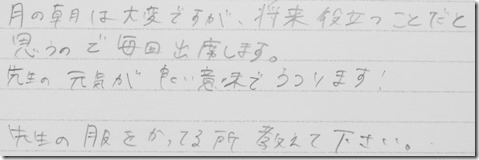 月の朝は大変ですが、将来役立つことだと
思うので毎回出席します。
先生の元気が良い意味でうつります!
先生の服をかってる所教えて下さい。